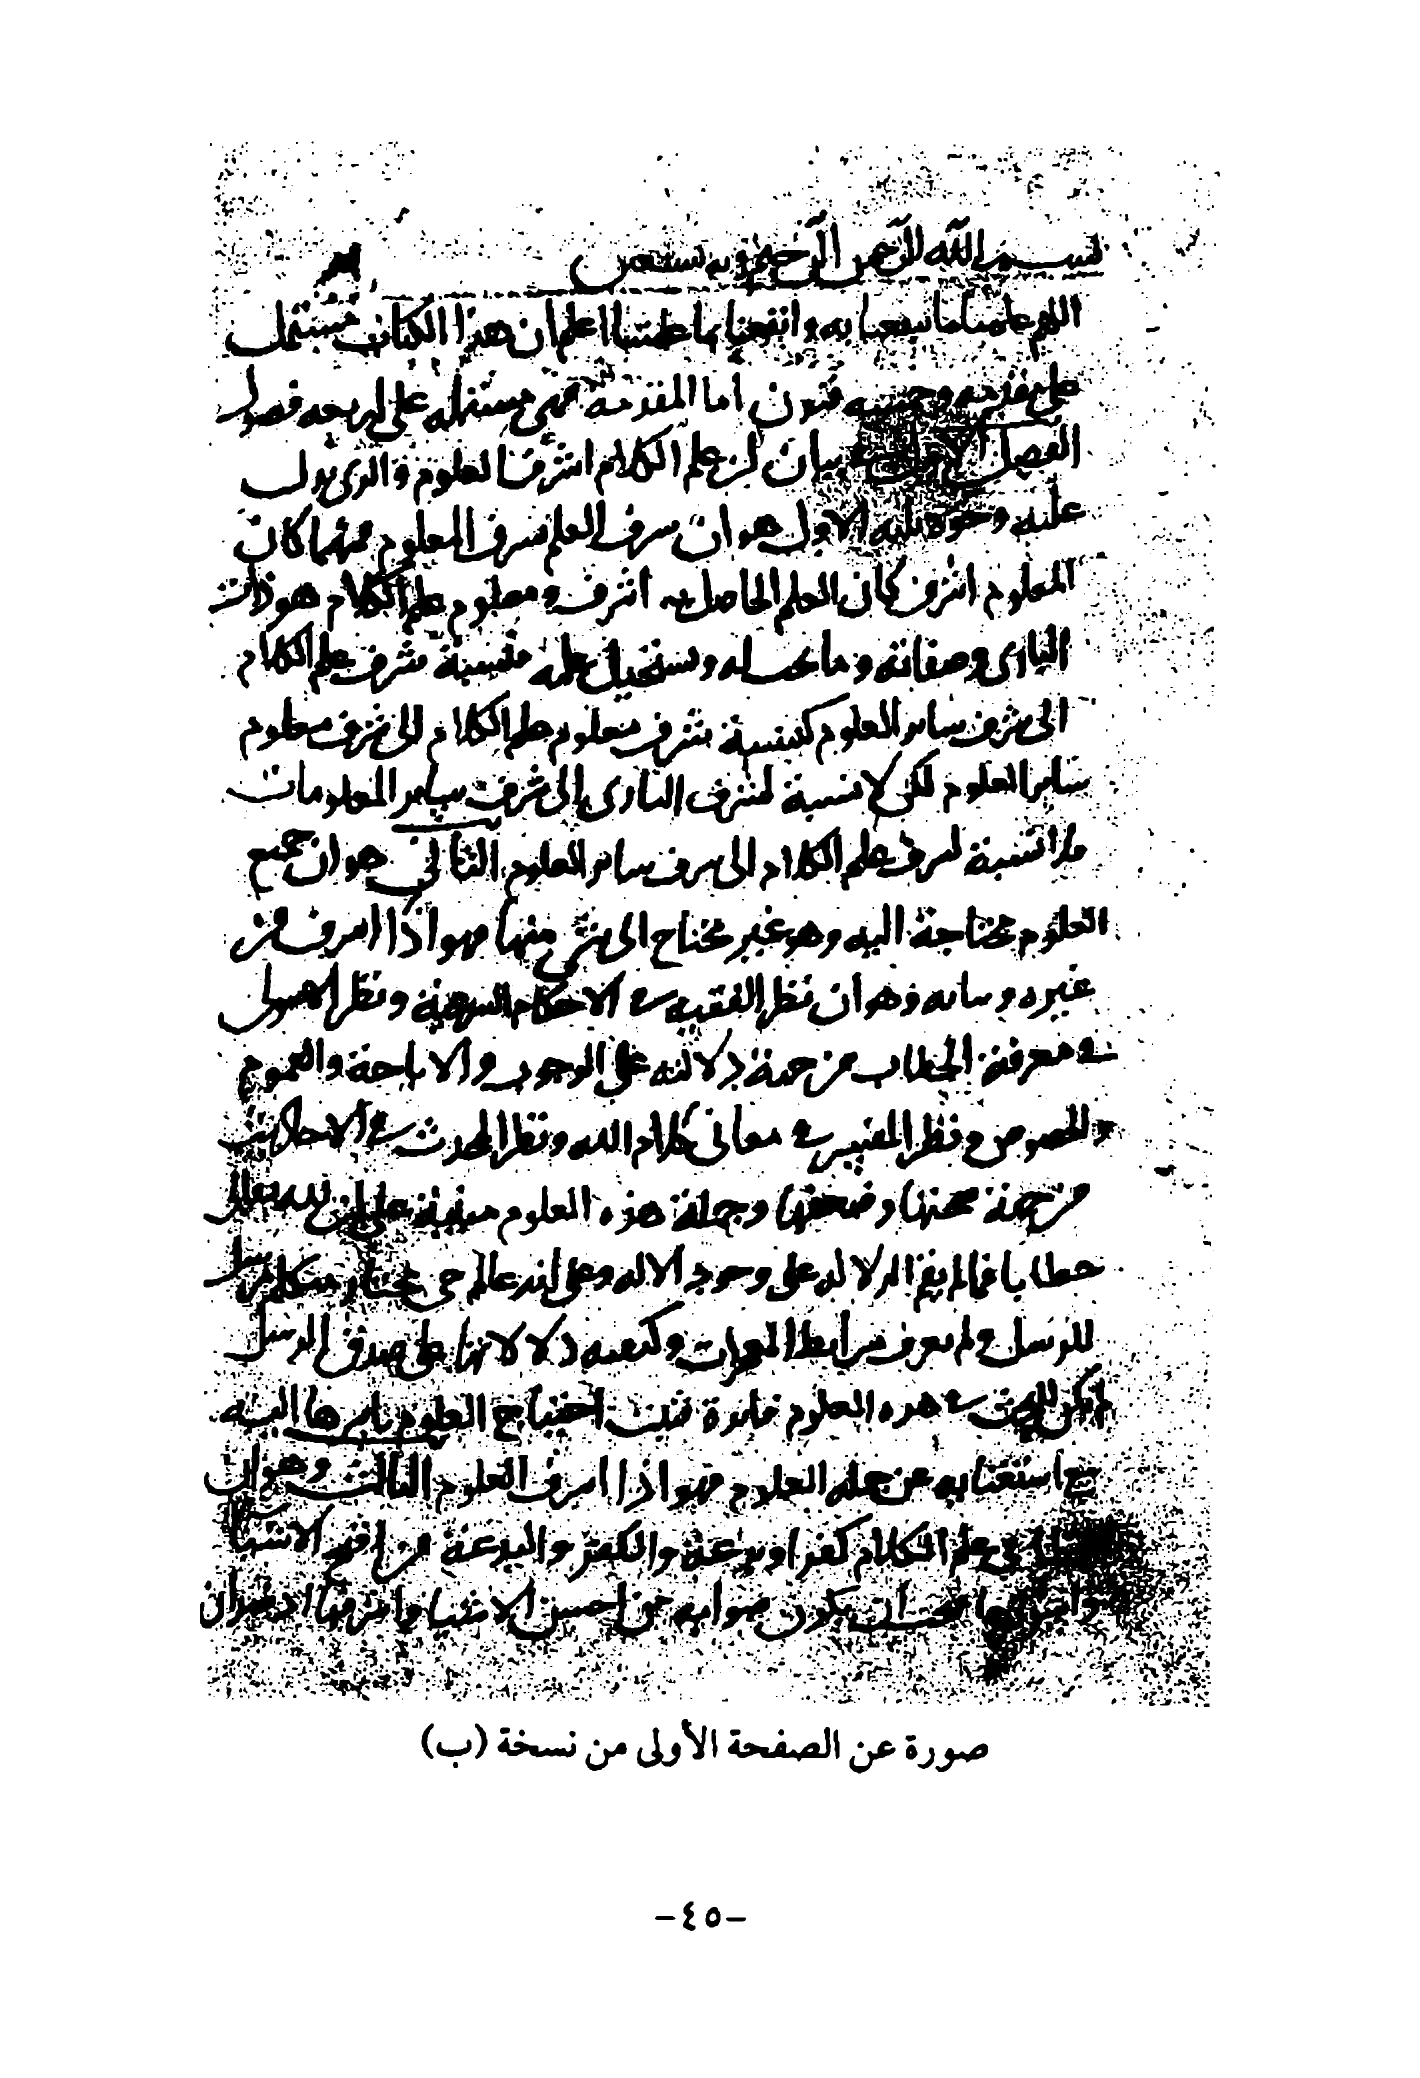 بسم الله الرحمن الرحيم وبه نستعين
اللهم علمنا ما ينفعنا به وانفعنا بما علمتنا اعلم ان هذا الكتاب مشتمل
على مقدمه وخمسه فنون اما المقدمة فهي مشتمله على اربعه فصول
الفصل الاول في بيان ان علم الكلام اشرف العلوم والذي يدل
عليه وجوه ثلثه الاول هو ان شرف العلم شرف المعلوم فمهما كان
المعلوم اشرف كان العلم الحاصل به اشرف ومعلوم علم الكلام هو ذات
الباري وصفاته وما يجب له ويستحيل عليه فنسبة شرف علم الكلام
الى شرف ساير العلوم كنسبة شرف معلوم علم الكلام الى شرف معلوم
ساير العلوم لكن لا نسبة لشرف الباري الى شرف ساير المعلومات
فلا نسبة لشرف علم الكلام الى شرف ساير العلوم الثاني هو ان جميع
العلوم محتاجة اليه وهو غير محتاج الى شي منها فهو اذا اشرف من
غيره وبيانه وهو ان نظر الفقيه في الاحكام الشرعية ونظر الاصولي
في معرفة الخطاب من جهة دلالته على الوجوب والاباحة والعموم
والخصوص ونظر المفسر في معاني كلام الله ونظر المحدث في الاحاديث
من جهة صحتها وضعفها وجملة هذه العلوم مبنية على ان لله تعالى
خطابا فما لم يقم الدلاله على وجود الاله وعلى انه عالم حي مختار متكلم مرسل
للرسل ولم يعرف شرايط المعجزات وكيفيه دلالاتها على صدق الرسل
لم يكن للبحث في هذه العلوم فايدة فثبت احتياج العلوم باسرها اليه
مع استغنايه عن جمله العلوم فهو اذا اشرف العلوم الثالث وهو ان
في علم الكلام كفر او بدعة والكفر والبدعة من اقبح الاشيا
فيجب ان يكون صوابه من احسن الاشيا واشرفها
صورة عن الصفحة الأولى من نسخة (ب)
-٤٥-